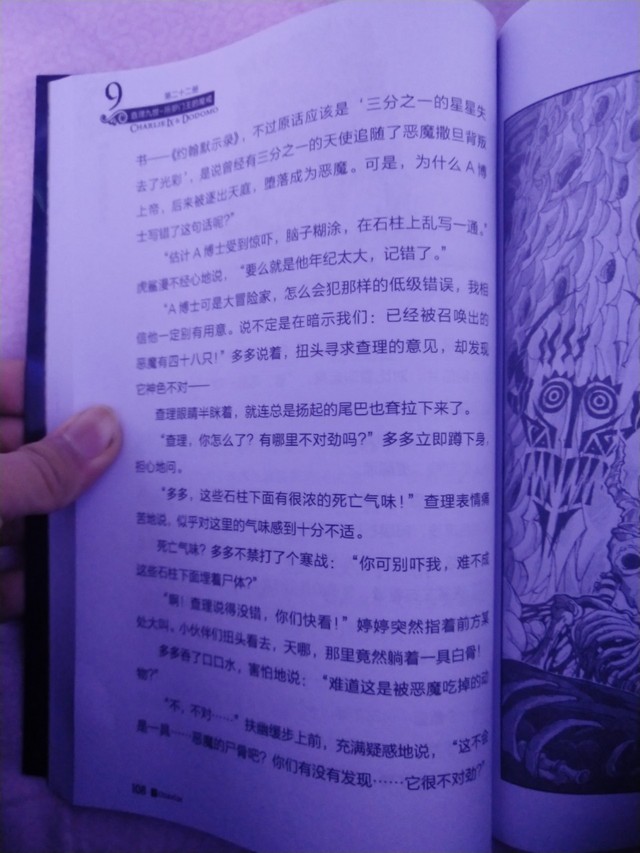 9
第二十二册
查理九世·所罗门王的魔戒
CHARLIE IX & DODOMO
书——《约翰默示录》,不过原话应该是‘三分之一的星星失
去了光彩’,是说曾经有三分之一的天使追随了恶魔撒旦背叛
上帝,后来被逐出天庭,堕落成为恶魔。可是,为什么A博
士写错了这句话呢?”
“估计A博士受到惊吓,脑子糊涂,在石柱上乱写一通。”
虎鲨漫不经心地说,“要么就是他年纪太大,记错了。”
“A博士可是大冒险家,怎么会犯那样的低级错误,我相
信他一定别有用意。说不定是在暗示我们:已经被召唤出的
恶魔有四十八只!”多多说着,扭头寻求查理的意见,却发现
它神色不对——
查理眼睛半眯着,就连总是扬起的尾巴也耷拉下来了。
“查理,你怎么了?有哪里不对劲吗?”多多立即蹲下身,
担心地问。
“多多,这些石柱下面有很浓的死亡气味!”查理表情痛
苦地说,似乎对这里的气味感到十分不适。
死亡气味?多多不禁打了个寒战:“你可别吓我,难不成
这些石柱下面埋着尸体?”
“啊!查理说得没错,你们快看!”婷婷突然指着前方某
处大叫。小伙伴们扭头看去,天哪,那里竟然躺着一具白骨!
多多吞了口口水,害怕地说:“难道这是被恶魔吃掉的动
物?”
“不,不对……”扶幽缓步上前,充满疑惑地说,“这不会
是一具……恶魔的尸骨吧?你们有没有发现……它很不对劲?”
108